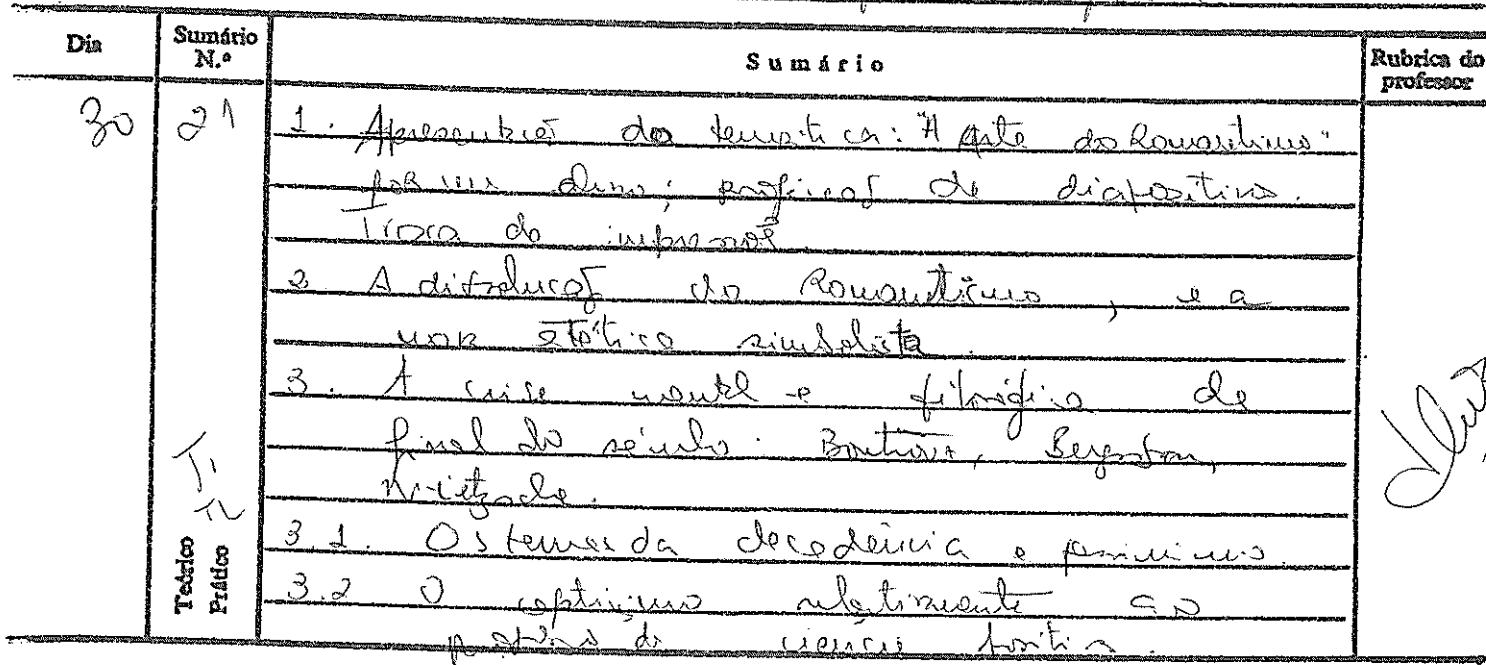 Dia
Sumário N.º
Sumário
Rubrica do professor
30
21
1. Apresentação da temática: "A arte do Romantismo"
por um aluno; projecção de diapositivos.
Troca de impressões
2. A dissolução do Romantismo, e a
nova estética simbolista.
3. A crise mental e filosófica de
final do século. Boutroux, Bergson,
Nietzsche.
3.1. Os temas da decadência e pessimismo
3.2 O cepticismo relativamente ao
da ciência positiva.
Teórico
Prático